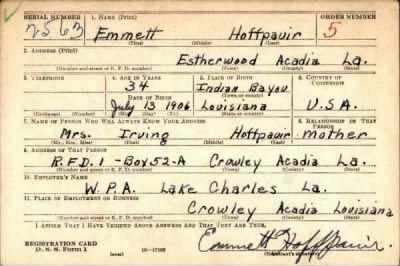 SERIAL NUMBER 1. NAME (Print) ORDER NUMBER
2563 Emmett Hoffpauir 5
(First) (Middle) (Last)
2. ADDRESS (Print)
Estherwood Acadia La.
(Number and street or R. F. D. number) (Town) (County) (State)
3. TELEPHONE 4. AGE IN YEARS 5. PLACE OF BIRTH 6. COUNTRY OF CITIZENSHIP
34 Indian Bayou
DATE OF BIRTH (Town or county)
July 13 1906 Louisiana U.S.A.
(Exchange) (Number) (Mo.) (Day) (Yr.) (State or country)
7. NAME OF PERSON WHO WILL ALWAYS KNOW YOUR ADDRESS 8. RELATIONSHIP OF THAT PERSON
Mrs. Irving Hoffpauir mother
(Mr., Mrs., Miss) (First) (Middle) (Last)
9. ADDRESS OF THAT PERSON
R.F.D. 1 - Box 52-A Crowley Acadia La.
(Number and street or R. F. D. number) (Town) (County) (State)
10. EMPLOYER'S NAME
W.P.A. Lake Charles La.
11. PLACE OF EMPLOYMENT OR BUSINESS
Crowley Acadia Louisiana
(Number and street or R. F. D. number) (Town) (County) (State)
I AFFIRM THAT I HAVE VERIFIED ABOVE ANSWERS AND THAT THEY ARE TRUE.
REGISTRATION CARD
D. S. S. Form 1 (over) 16-17105 Emmett Hoffpauir
(Registrant's signature)